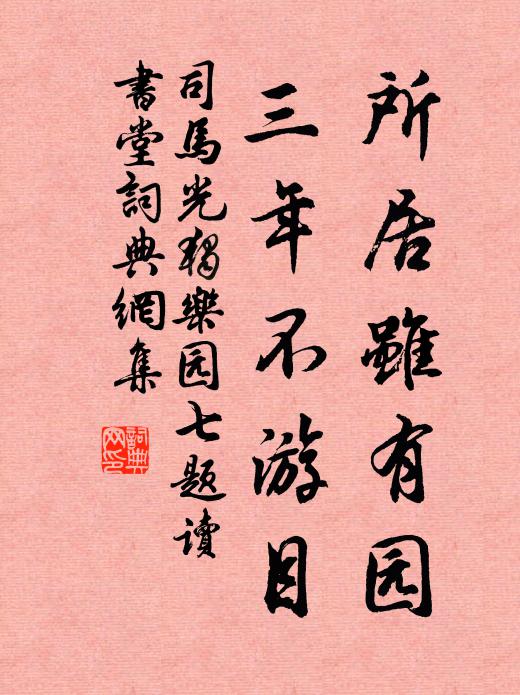 所居雖有园
三年不游目
司馬光獨樂园七題讀
書堂詞典網集
詞典网印